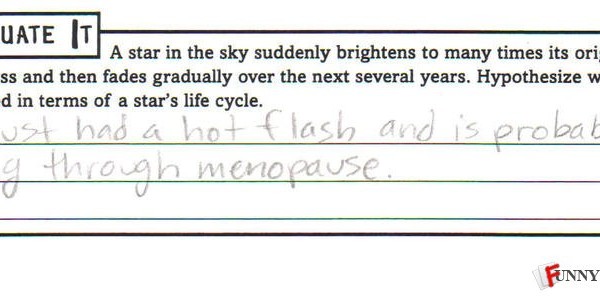 UATE IT
A star in the sky suddenly brightens to many times its ori
ss and then fades gradually over the next several years. Hypothesize w
d in terms of a star's life cycle.
ust had a hot flash and is probab
g through menopause.
FUNNY